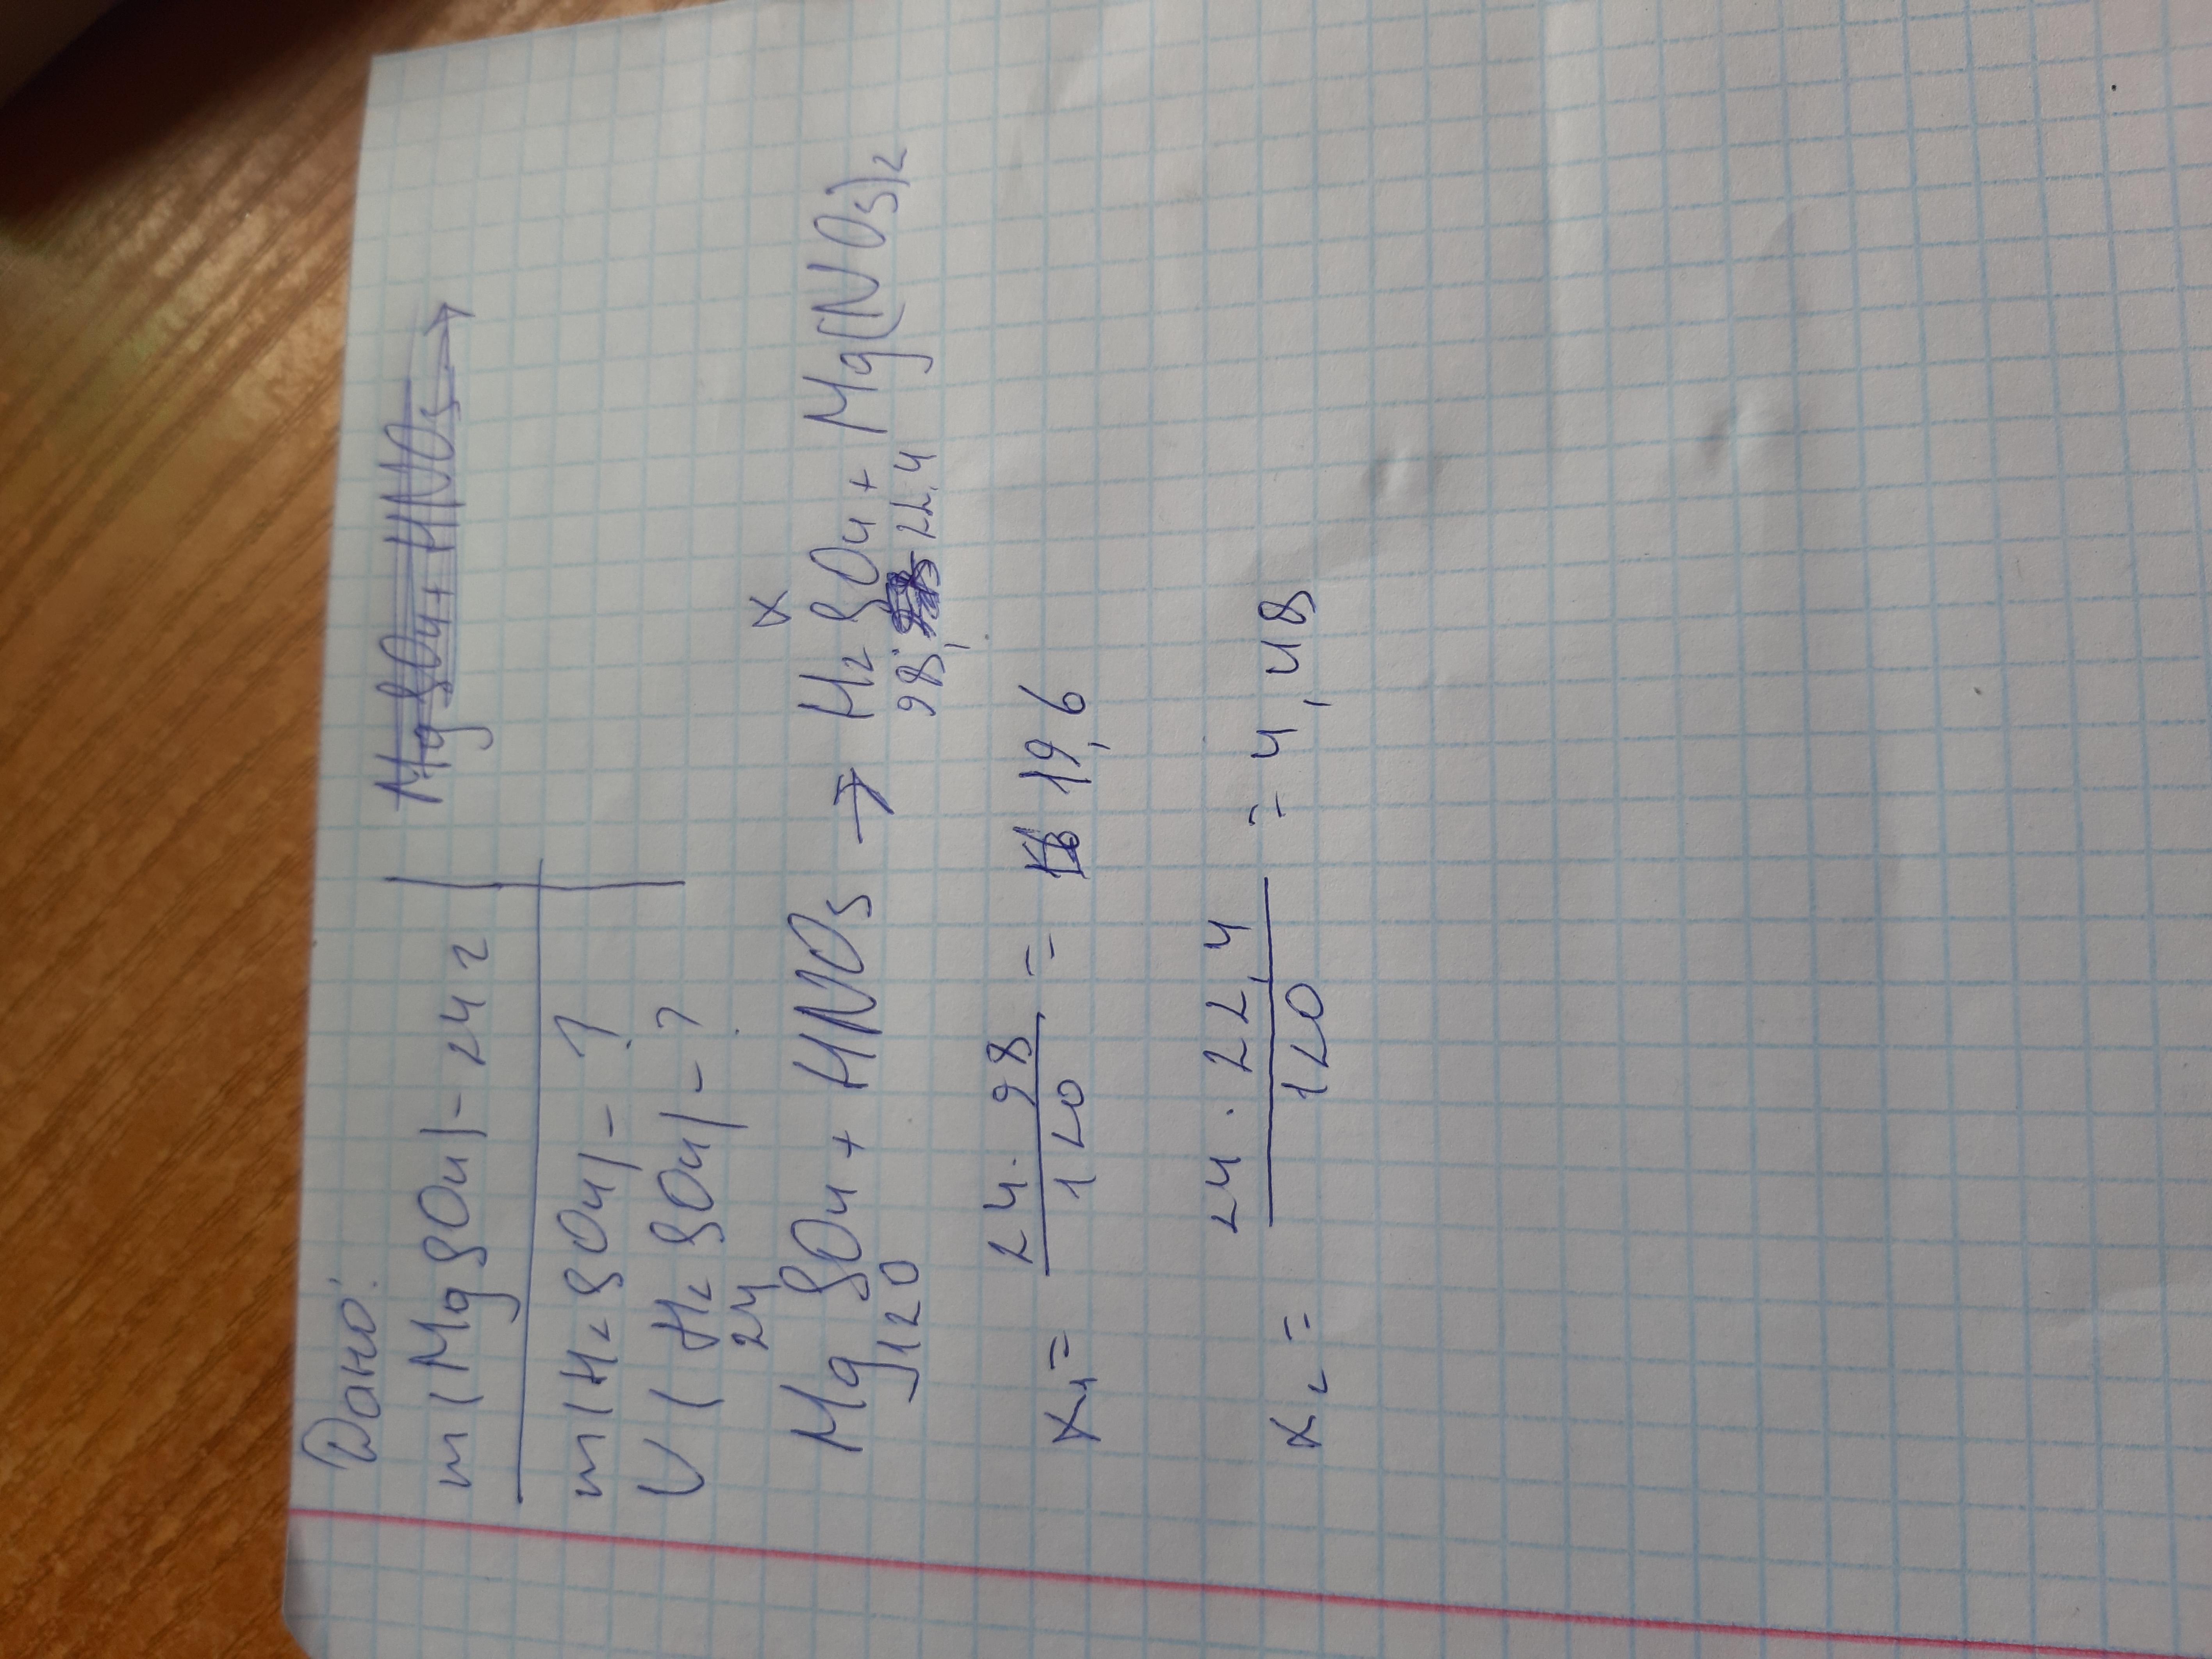 Дано:
m(MgSO4)-24 г
MgSO4+HNO3→
m(H2SO4)-?
V(H2SO4)-?
24 x
MgSO4+HNO3→H2SO4+Mg(NO3)2
120 98, 22,4
x1= 24·98/120 = 19,6
x2= 24·22,4/120 = 4,48